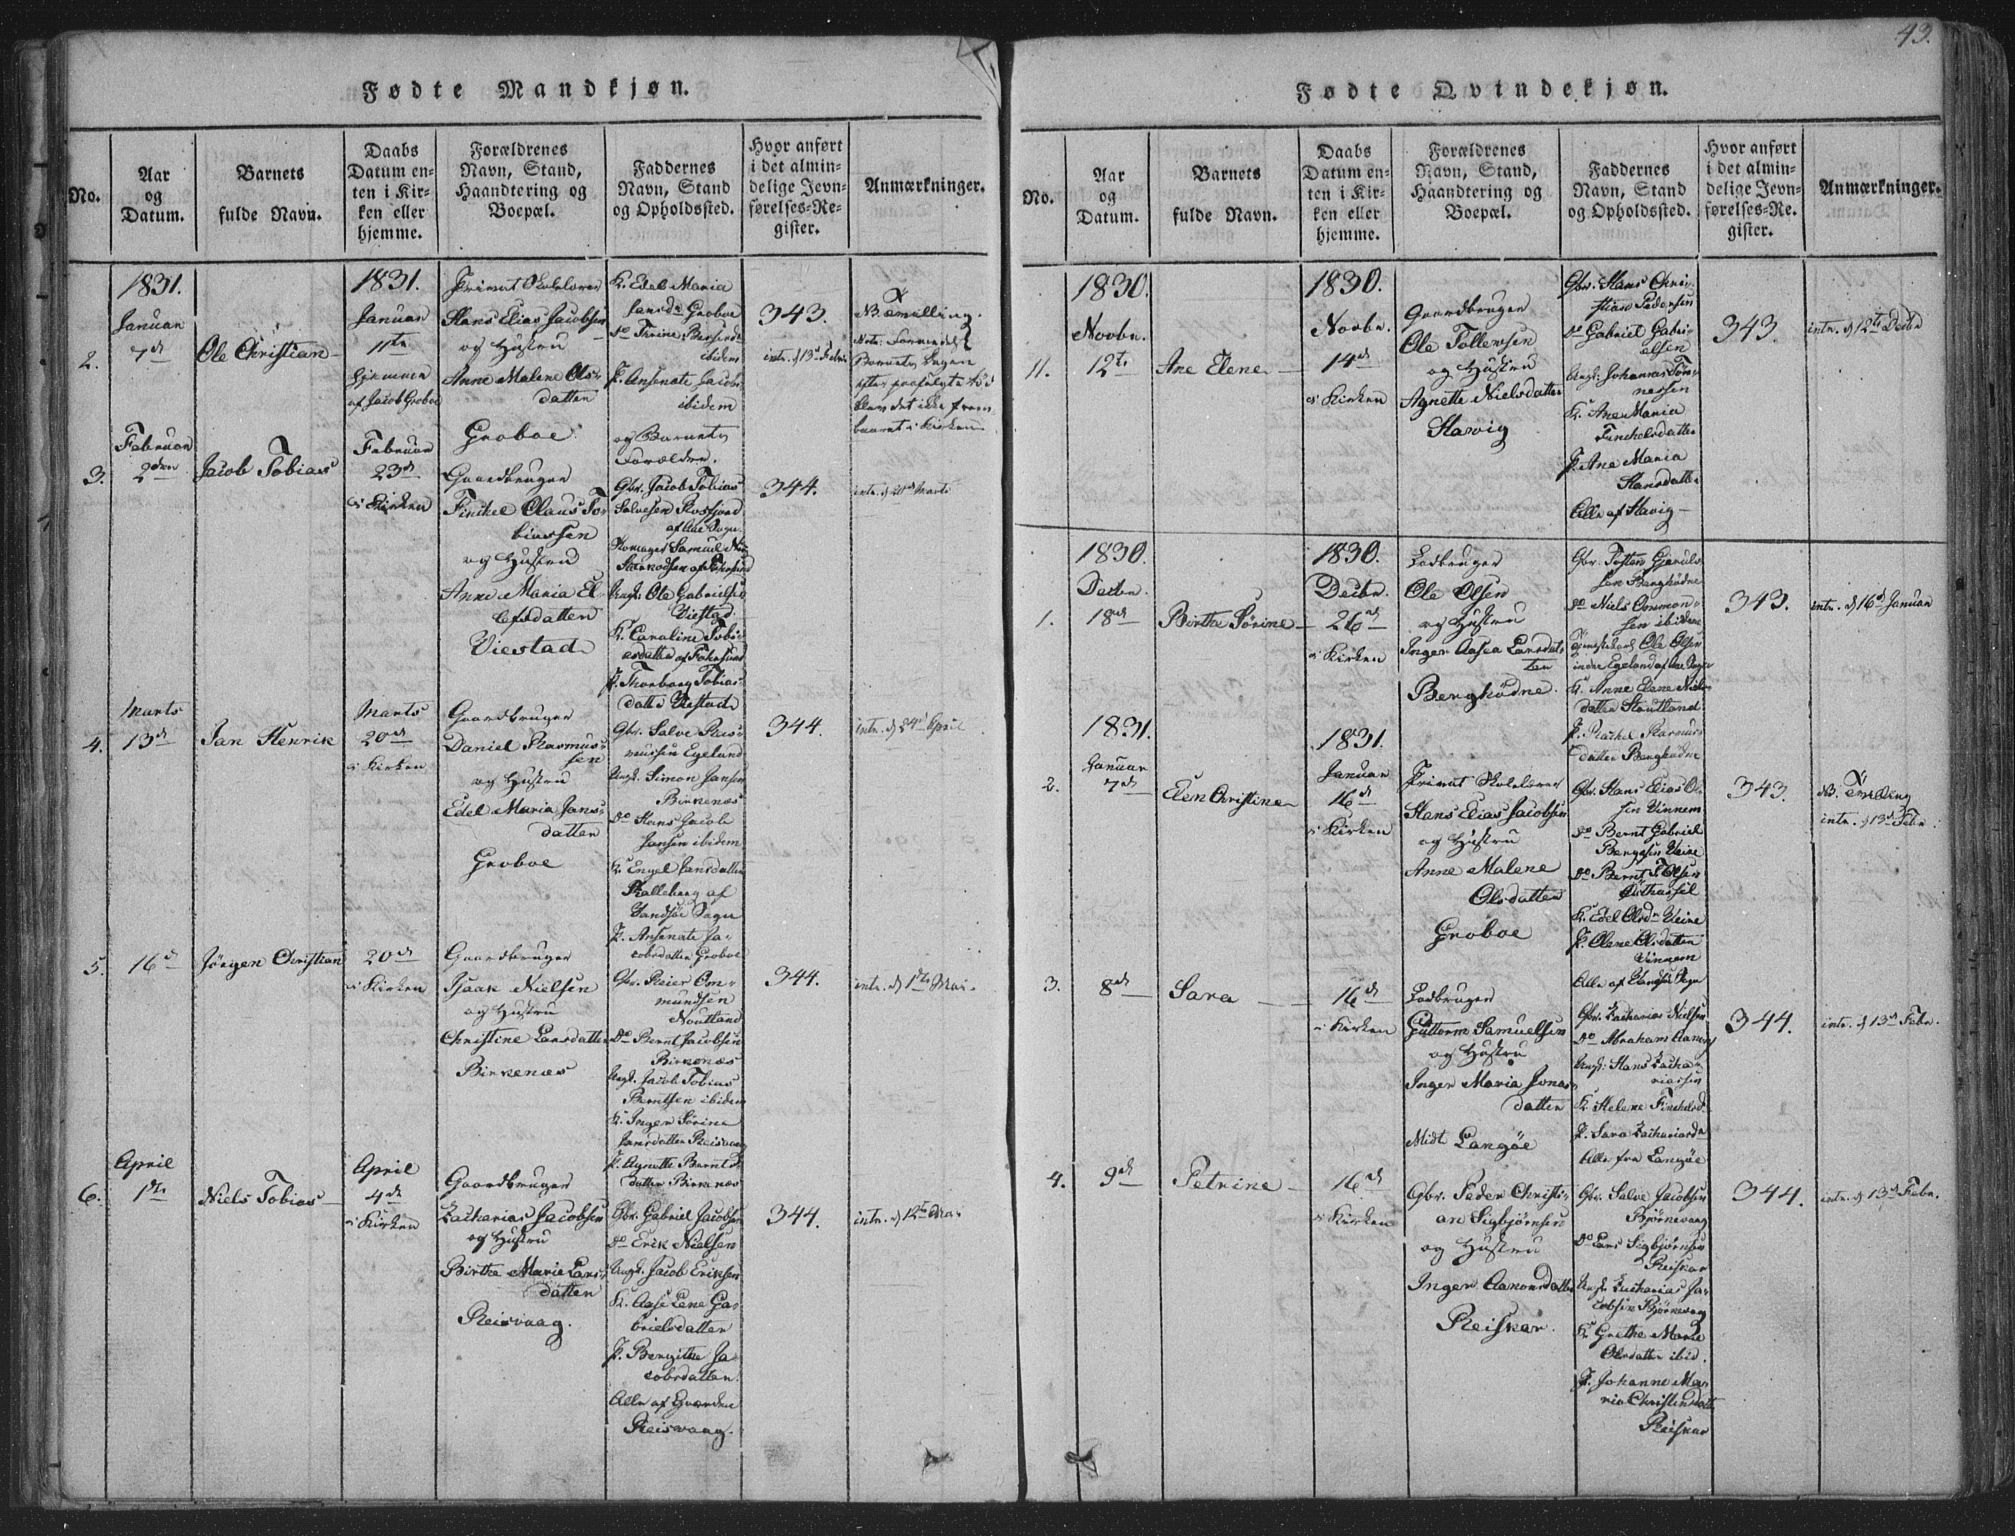 43.
Fødte Mandkjøn.
No.
Aar
og
Datum.
Barnets
fulde Navn.
Daabs
Datum en-
ten i Kir-
ken eller
hjemme.
Forældrenes
Navn, Stand,
Haandtering og
Boepæl.
Faddernes
Navn, Stand
og Opholdssted.
Hvor anført
i det almin-
delige Jevn-
førelses-Re-
gister.
Anmærkninger.
2.
1831.
Januar
7de
Ole Christian
1831.
Januar
11te
hjemme
af Jacob Groboe
Privat Skolelærer
Hans Elias Jacobsen
og Hustru
Anne Malene Ols-
datten
Groboe
K. Edel Maria
Jansdr Groboe
ibidem
P. Ansenate Jacobs
ibidem
og Barnets
Forældre.
343.
intr. d 13de Febr.
NB. Tvilling.
Barnets
3.
Februar
2den
Jacob Tobias
Februar
23de
i Kirken
Gaardbruger
Finkel Olaus To-
biassen
og Hustru
Anne Maria El-
efsdatten
Viestad
Gbr. Jacob Tobias
Salvesen Rosfjord
af Aae Sogn
Ungk. Ole Gabrielsen
Viestad
K. Caroline Tobi-
asdatten af Farsund
P. Thorborg Tobias-
datter Viestad
344.
intr. d 20de Marts
4.
Marts
13de
Jan Henrik
Marts
20de
i Kirken
Gaardbruger
Daniel Rasmus-
sen
og Hustru
Edel Maria Jans-
datten
Groboe
Gbr. Salve Ras-
mussen Egeland
Ungk. Simon Jansen
Birkenæs
Do Hans Jacob
Jansen ibidem
K. Engel Jansdatten
Skalleberg af
Vandsøe Sogn
P. Ansenate Ja-
cobsdatten Groboe
344.
intr. d 24de April
5.
16de
Jörgen Christian
20de
i Kirken
Gaardbruger
Isaak Nielsen
og Hustru
Christine Larsdatten
Birkenæs
Gbr. Reier Om-
mundsen
Noutland
Do Bernt Jacobsen
Birkenæs
Ungk. Jacob Tobias
Berntsen ibidem
K. Inger Sörine
Jansdatten Reisvaag
P. Agnethe Bernts-
datten Birkenæs
344.
intr. d 1te Mai
6.
April
1te
Niels Tobias
April
4de
i Kirken
Gaardbruger
Zacharias Jacobsen
og Hustru
Birthe Marie Lars-
datten
Reisvaag.
Gbr. Gabriel Jacobsen
Do Erik Nielsen
Ungk. Jacob Eriksen
K. Aase Lene Ga-
brielsdatten
P. Bergithe Ja-
cobsdatten
Alle af Gaarden
Reisvaag.
344.
intr. d 12te Mai
Fødte Qvindekjøn.
No.
Aar
og
Datum.
Barnets
fulde Navn.
Daabs
Datum en-
ten i Kir-
ken eller
hjemme.
Forældrenes
Navn, Stand,
Haandtering og
Boepæl.
Faddernes
Navn, Stand
og Opholdssted.
Hvor anført
i det almin-
delige Jevn-
førelses-Re-
gister.
Anmærkninger.
11.
1830.
Novbr.
12te
Ane Elene
1830.
Novbr.
14de
i Kirken
Gaardbruger
Ole Tollevsen
og Hustru
Agnethe Nielsdatter
Havig
Gbr. Hans Chri-
stian Pedersen
Do Gabriel Gabri-
elsen
Ungk. Johannes Tön-
nessen
K. Ane Maria
Finckelsdatter
P. Ane Maria
Hansdatter
Alle af Havig
343.
intr. d 12te Decbr
1.
1830.
Decbr.
18de
Birthe Sörine
1830.
Decbr.
26de
i Kirken
Ladbruger
Ole Olsen
og Hustru
Inger Aasea Larsdat-
ten
Berghödne.
Gbr. Tosten Gjeruls-
sen Berghödne
Do Niels Ommund-
sen ibidem
K. Anne Elene Niels-
datten Stoutland
P. Rachel Rasmus-
datten Berghödne
343.
intr. d 16de Januar
2.
1831.
Januar
7de
Elen Christine
1831.
Januar
16de
i Kirken
Privat Skolelærer
Hans Elias Jacobsen
og Hustru
Anne Malene
Olsdatten
Groboe
Gbr. Hans Elias Ol-
sen Vinnem
Do Bernt Gabriel
Do Bernt T. Olsen
P. Olene Olsdatten
Vinnem
343.
NB. Tvilling
intr. d 13de Febr.
3.
8de
Sara
16de
i Kirken
Ladbruger
Guttorm Samuelsen
og Hustru
Inger Maria Jonas-
datten
Midt Langöe
Gbr. Zacharias Nielsen
Ungk. Hans Zacha-
riassen
K. Helene Finckelsd.
P. Sara Zachariasdr
Alle fra Langöe
344.
intr. d 13de Febr.
4.
9de
Petrine
16de
i Kirken
Gbr. Peder Christi-
an Sigbjörnsen
og Hustru
Inger Aanonsdatter
Reiskar.
Gbr. Salve Jacobsen
Björnevaag
Do Lars Sigbjörnsen
Reiskar
Ungk. Zacharias Ja-
cobsen Björnevaag
K. Grethe Marie
Olsdatten ibid.
P. Johanne Ma-
ria Christensdatt
Reiskar
344.
intr. d 13de Febr.